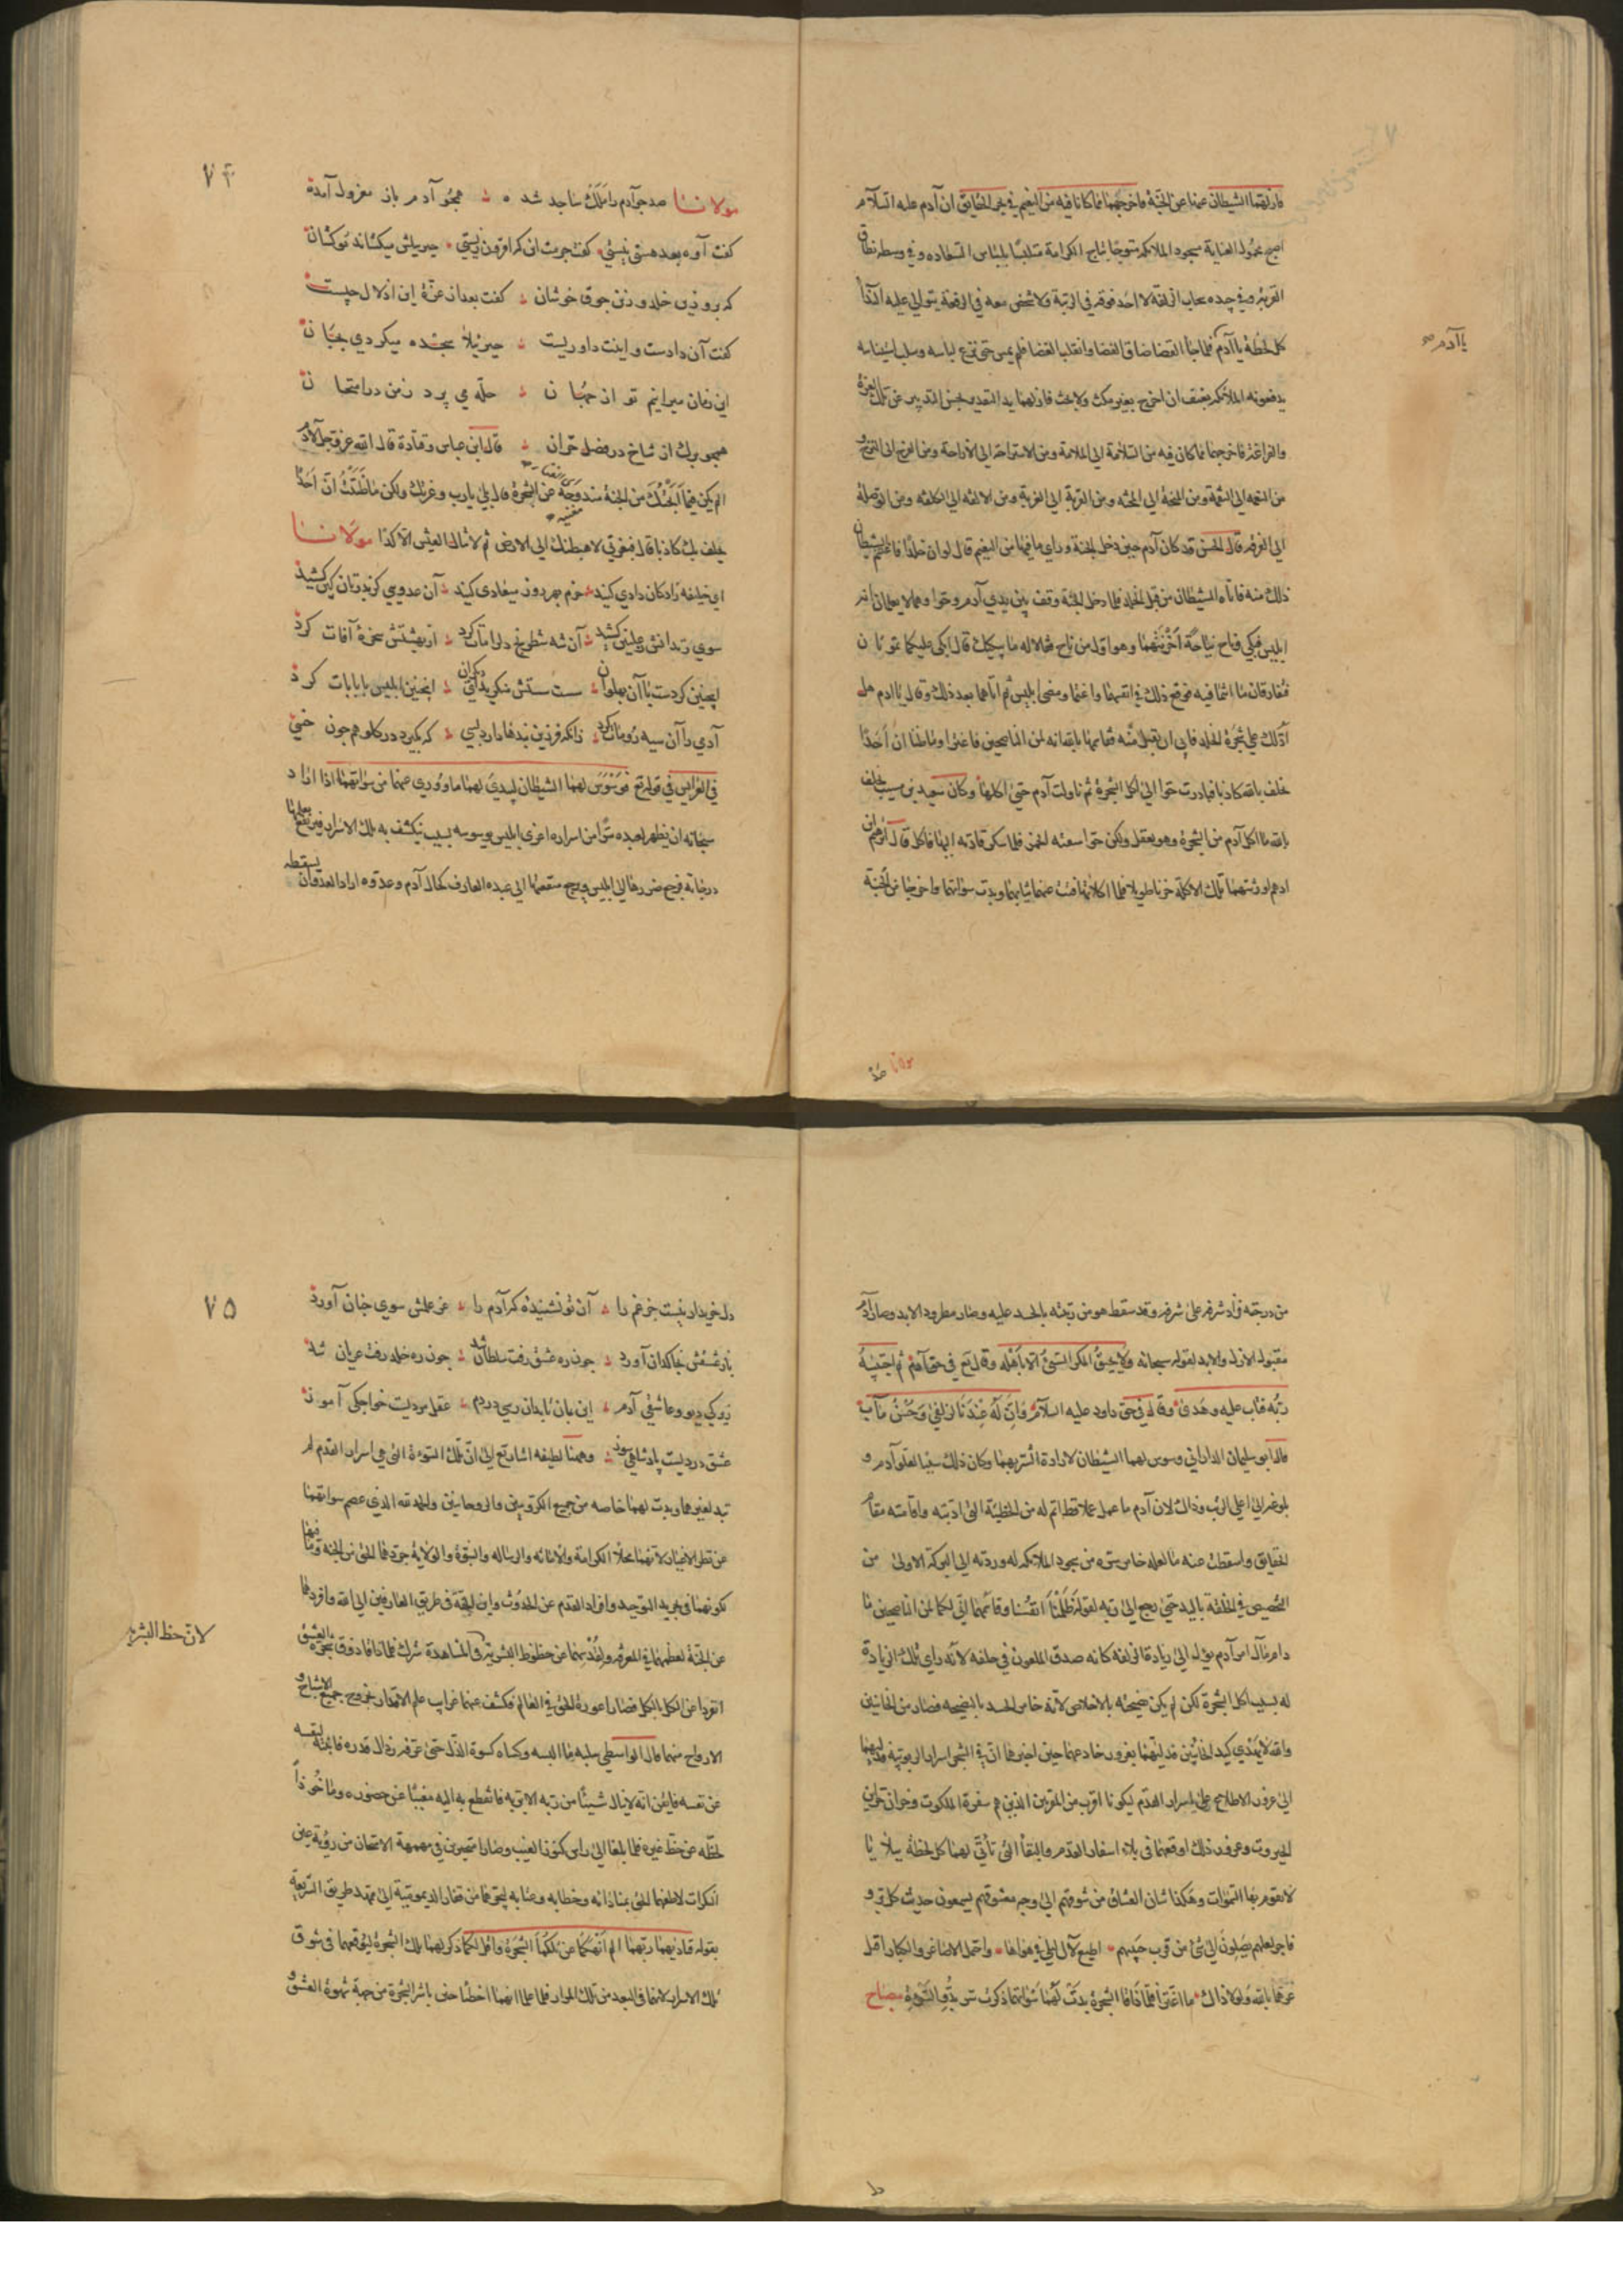 فازلهما الشيطان عنها عن الجنة فاخرجهما مما كانا فيه من النعيم في بحر الحقايق ان آدم عليه السلام
اصبح محمول العناية مسجود الملائكة متوجا بتاج الكرامة متلبسا بلباس السعادة و في وسطه نطاق
القربة و في جيده سحاب الزلفة لا احد فوقه في الرتبة ولا شخص معه في الرفعة يتوالى عليه النداء
كل لحظة يا آدم فلما جاء القضا ضاق الفضا وانقلب القضا فلم يمس حتى نزع لباسه وسلب استيناسه
يا آدم صح
يدفعونه الملائكة بعنف ان اخرج بغير مكث ولا بحث فازلهما يد التقدير بحسن التدبير عن تلك العزة
والفراغة فاخرجهما مما كان فيه من السلامة الى الملامة ومن الاستراحة الى ومن الفرح الى الترح و
من النعمة الى النقمة ومن المحبة الى المحنة ومن القربة الى الغربة ومن الالفة الى الكلفة ومن الوصلة
الى الفرقة قال الحسن قد كان آدم حين دخل الجنة وراى ما فيها من النعيم قال لو ان خلدا فاغتنم الشيطان
ذلك منه فاتاه الشيطان من قبل الخلد فلما دخل الجنة وقف بين يدي آدم وحوا وهما لا يعلمان انه
ابليس فبكى وناح نياحة احزنتهما وهو اول من ناح فقالا له ما يبكيك قال ابكي عليكما تموتان
فتفارقان ما انتما فيه فوقع ذلك في انفسهما واغتما ومضى ابليس ثم اتاهما بعد ذلك وقال يا آدم هل
ادلك على شجرة الخلد فابى ان يقبل منه فقاسمهما بالله انه لمن الناصحين فاغترا وما ظنا ان احدا
يحلف بالله كاذبا فبادرت حوا الى اكل الشجرة ثم ناولت آدم حتى اكلها وكان سعيد بن مسيب يحلف
بالله ما اكل آدم من الشجرة وهو يعقل ولكن حوا سقته الخمر فلما سكر قادته اليها فاكل قال ابرهيم ابن
ادهم اورثتهما تلك الاكلة حزنا طويلا فلما اكلا تهافتت عنهما ثيابهما وبدت سوآتهما واخرجا من الجنة
مولانا صد
٧٤
مولانا صد چو آدم را ملك ساجد شده ؞ همچو آدم باز معزول آمده
كفت آوه بعد هستى نيستى ؞ كفت جرمت اين كه افزون زيستى ؞ جبرئيلش ميكشاند موكشان
كه برو زين خلد و زين جوق خوشان ؞ كفت بعد از عزة اين اذلال چيست
كفت آن دادست و اينت داوريست ؞ جبرئيلا سجده ميكردي بجان
اين زمان ميرانيم تو از جهان ؞ حله مي پرد ز من در امتحان
همچو برك از شاخ در فصل خزان ؞ قال ابن عباس وقتادة قال الله عز وجل لآدم
الم يكن فيما ابحتك من الجنة مندوحة عن الشجرة قال بلى يا رب وعزتك ولكن ما ظننت ان احدا
يحلف بك كاذبا قال فبعزتي لاهبطنك الى الارض ثم لا تنال العيش الا كدا مولانا
اي خليفه زادكان دادي كنيد ؞ حزم بهر روز ميعادي كنيد ؞ آن عدويي كز پدرتان كين كشيد
سوي زندانش ز عليين كشيد ؞ آن شه شطرنج دل را مات كرد ؞ از بهشتش سخرۀ آفات كرد
اينچنين كردست با آن پهلوان ؞ سست سستش منكريد اي ديكران ؞ اينچنين ابليس با بابات كرد
آدمي را آن سيه رو مات كرد ؞ زانكه فرزين بندها داند بسي ؞ كه بكيرد در كلو همچون خسي
في العرايس في قوله تع فوسوس لهما الشيطان ليبدي لهما ما ووري عنهما من سوآتهما اذا اراد
سبحانه ان يظهر لعبده سرا من اسراره اغرى ابليس بوسوسه بسبب ينكشف به تلك الاسرار فيرتفع بعلمها
درجاته فيرجع ضررها الى ابليس ويرجع منفعتها الى عبده العارف كحال آدم وعدوه اراد العدو ان يسقطه
من درجته فزاد شرفه على شرفه وقد سقط هو من رتبته بالحسد عليه وصار مطرود الابد وصار آدم
مقبول الازل والابد لقوله سبحانه ولا يحيق المكر السيئ الا باهله وقال تع في حق آدم ثم اجتبيه
ربه فتاب عليه وهدى وقال في حق داود عليه السلام وان له عندنا لزلفى وحسن مآب
قال ابو سليمان الداراني وسوس لهما الشيطان لارادة الشر بهما وكان ذلك سببا لعلو آدم و
بلوغه الى اعلى الرتب وذاك لان آدم ما عمل عملا قط اتم له من الخطيئة التي ادبته واقامته مقام
الحقايق واسقطت عنه ما لعله خامر سره من سجود الملائكة له وردته الى البركة الاولى من
التخصيص في الخلقة باليد حتى رجع الى ربه بقوله ظلمنا انفسنا وقاسمهما اني لكما لمن الناصحين ما
دام مآل امر آدم يؤل الى زيادة الزلفة كانه صدق الملعون في حلفه لانه راى تلك الزيادة
له بسبب اكل الشجرة لكن لم يكن نصيحته بالاخلاص لانه خامر الحسد بالنصيحه فصار من الخائنين
والله لا يهدي كيد الخائنين فدليهما بغرور خادعهما حين اخبرهما ان في الشجر اسرار الربوبية فدليهما
الى غرور الاطلاع على اسرار القدم ليكونا اقرب من المقربين الذين هم سفرة الملكوت وخزان خزاين
الجبروت وغرور ذلك اوقعهما في بلاء اسفار القدم والبقا التي تأتي لهما كل لحظة ببلايا
لا يقوم بها السموات وهكذا شان العشاق من شوقهم الى وجه معشوقهم يسمعون حديث كل بر و
فاجر لعلهم يصلون الى شئ من قرب حبيبهم ؞ اطيع لآل ليلى في هواها ؞ واحتمل الاصاغر والكبارا قيل
غرهما بالله ولولا ذاك ما اغترا فلما ذاقا الشجرة بدت لهما سوآتهما ذكرت سر بدو السوءة
مصباح
٧٥
دل خريدار نيست جز غم را ؞ آن تو نشنيدۀ كه آدم را ؞ عز علمش سوي جنان آورد
باز عشقش بخاكدان آورد ؞ چون ره عشق رفت سلطان شد ؞ چون ره خلد رفت عريان شد
زيركي ديو و عاشقي آدم ؞ اين بمان تا بدان رسي در دم ؞ عقل مرديست خواجكى آموز
عشق درديست پادشاهي سوز ؞ وههنا لطيفه اشار تع الى ان تلك السوءة التي هي اسرار القدم لم
تبد لغيرهما وبدت لهما خاصه من جميع الكروبيين والروحانيين والحمد لله الذي عصم سوآتهما
عن نظر الاغيار لانهما محلا الكرامة والامانه والرساله والنبوة والولاية جردهما الحق من الجنه وما فيها
لكونهما في تجريد التوحيد وافراد القدم عن الحدوث واين الجنة في طريق العارفين الى الله وافردهما
عن الجنة لعظمهما في المعرفه ولقدسهما عن حظوظ البشرية في المشاهدة شرك فلما ذاقا ذوق شجرة العشق
لان حظ البشرية
انفردا عن الكل بالكل فصارا عورة الحق في العالم فكشف عنهما غرايب علم الاقدار بخروج جميع الاشباح و
الارواح منهما قال الواسطي سلبه ما البسه وكساه كسوة الذل حتى عرفه قدره
عن نفسه فايقن انه لا ينال شيئا من ربه الا بربه فانقطع به اليه مغيبا عن حضوره وماخوذا
لحظه عن حظ غيره فلما بلغا الى راس كنوز الغيب وصارا متحيرين في مهمهة الامتحان من رؤية عين
النكرات لاطفهما الحق بمناداته وخطابه وعتابه ليخرجهما من قفار الديمومية الى ممهد طريق الشريعة
بقوله فناديهما ربهما الم انهكما عن تلكما الشجرة واقل لكما ذكر لهما تلك الشجرة ليوقعهما في شوق
تلك الاسرار لانهما في البعد من تلك الجوار فلما علما انهما اخطآ حين باشرا الشجرة من جهة شهوة العشق و